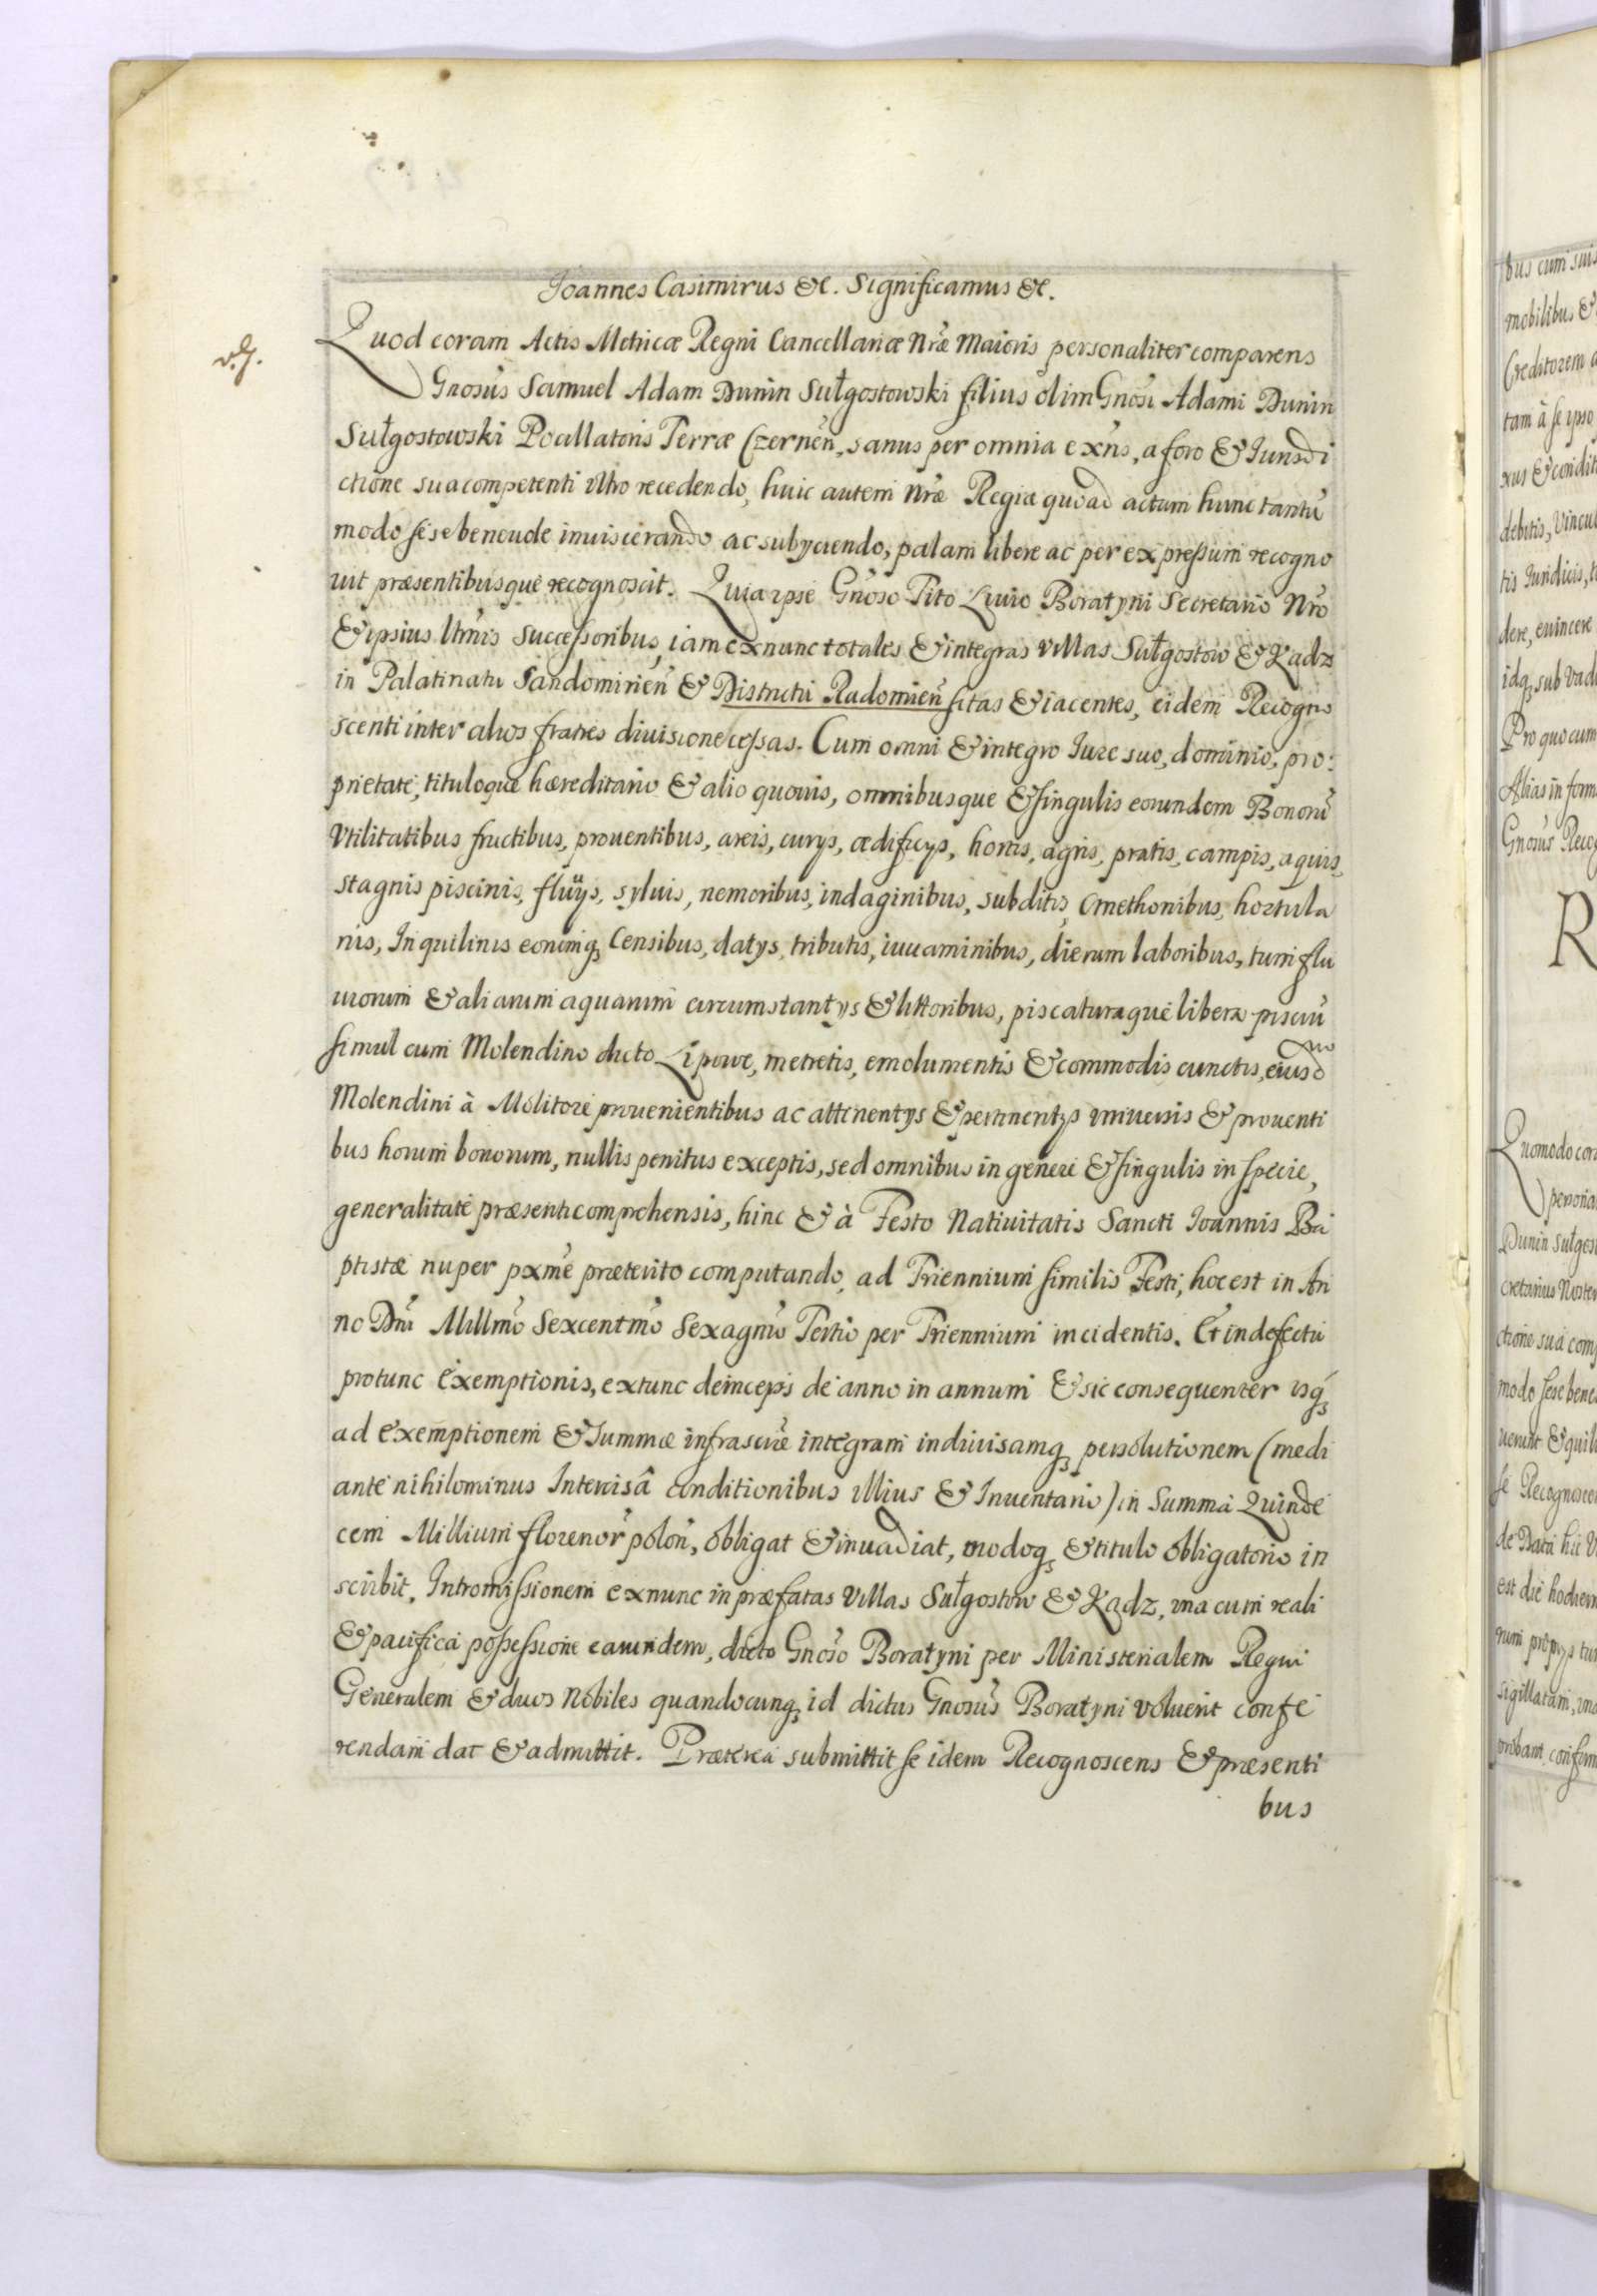 Joannes Casimirus &c. Significamus &c.
Quod coram Actis Metricæ Regni Cancellariæ Nræ Maioris personaliter comparens
Gnosus Samuel Adam Dunin Sułgostowski filius olim Gnosi Adami Dunin
Sułgostowski Pocillatoris Terræ Czernen, sanus per omnia exns, a foro & Iurisdi
ctione sua competenti ultro recedendo, huic autem Nræ Regiæ quoad actum hunc tantu
modo sese beneuole inuiscerando ac subyciendo, palam libere ac per expressum recogno
uit præsentibusque recognoscit. Quia ipse Gnoso Tito Liuio Boratyni Secretario Nro
& ipsius ltmis successoribus, iam ex nunc totales & integras villas Sułgostow & Kadz
in Palatinatu Sandomirien & Districtu Radomien sitas & iacentes, eidem Recogno
scenti inter alios fratres diuisione cessas. Cum omni & integro Iure suo, dominio, pro:
prietate, tituloque hæreditario & alio quouis, omnibusque & singulis eorundem Bonoru
Vtilitatibus fructibus, prouentibus, areis, curys, ædificys, hortis, agris, pratis, campis, aquis,
stagnis piscinis, fluys, syluis, nemoribus, indaginibus, subditis, Cmethonibus, hortula
nis, Inquilinis eorumq, Censibus, datys, tributis, iuuaminibus, dierum laboribus, tum flu
uiorum & aliarum aquarum circumstantys & littoribus, piscaturaque libera pisciu
simul cum Molendino dicto Lipowe, metretis, emolumentis & commodis cunctis, eiusd
Molendini à Molitore prouenientibus ac attinentys & pertinentys vniuersis & prouenti
bus horum bonorum, nullis penitus exceptis, sed omnibus in genere & singulis in specie,
generalitate præsenti comprehensis, hinc & à Festo Natiuitatis Sancti Ioannis Ba
ptistæ nuper pxme præterito computando, ad Triennium similis Festi, hoc est in An
no Dni Millmo Sexcentmo Sexagmo Tertio per Triennium incidentis. Et in defectu
protunc exemptionis, extunc deinceps de anno in annum & sic consequenter vsq,
ad exemptionem & Summæ infrascræ integram indiuisamq, persolutionem (medi
ante nihilominus Intercisâ conditionibus illius & Inuentario) in Summa Quinde
cem Millium florenor polon, obligat & inuadiat, modoq, & titulo obligatorio in
scribit, Intromissionem ex nunc in præfatas Villas Sułgostow & Kadz, vna cum reali
& pacifica possessione earundem, dicto Gnoso Boratyni per Ministerialem Regni
Generalem & duos Nobiles quandocunq, id dictus Gnosus Boratyni voluerit confe
rendam dat & admittit. Præterea submittit se idem Recognoscens & præsenti
bus